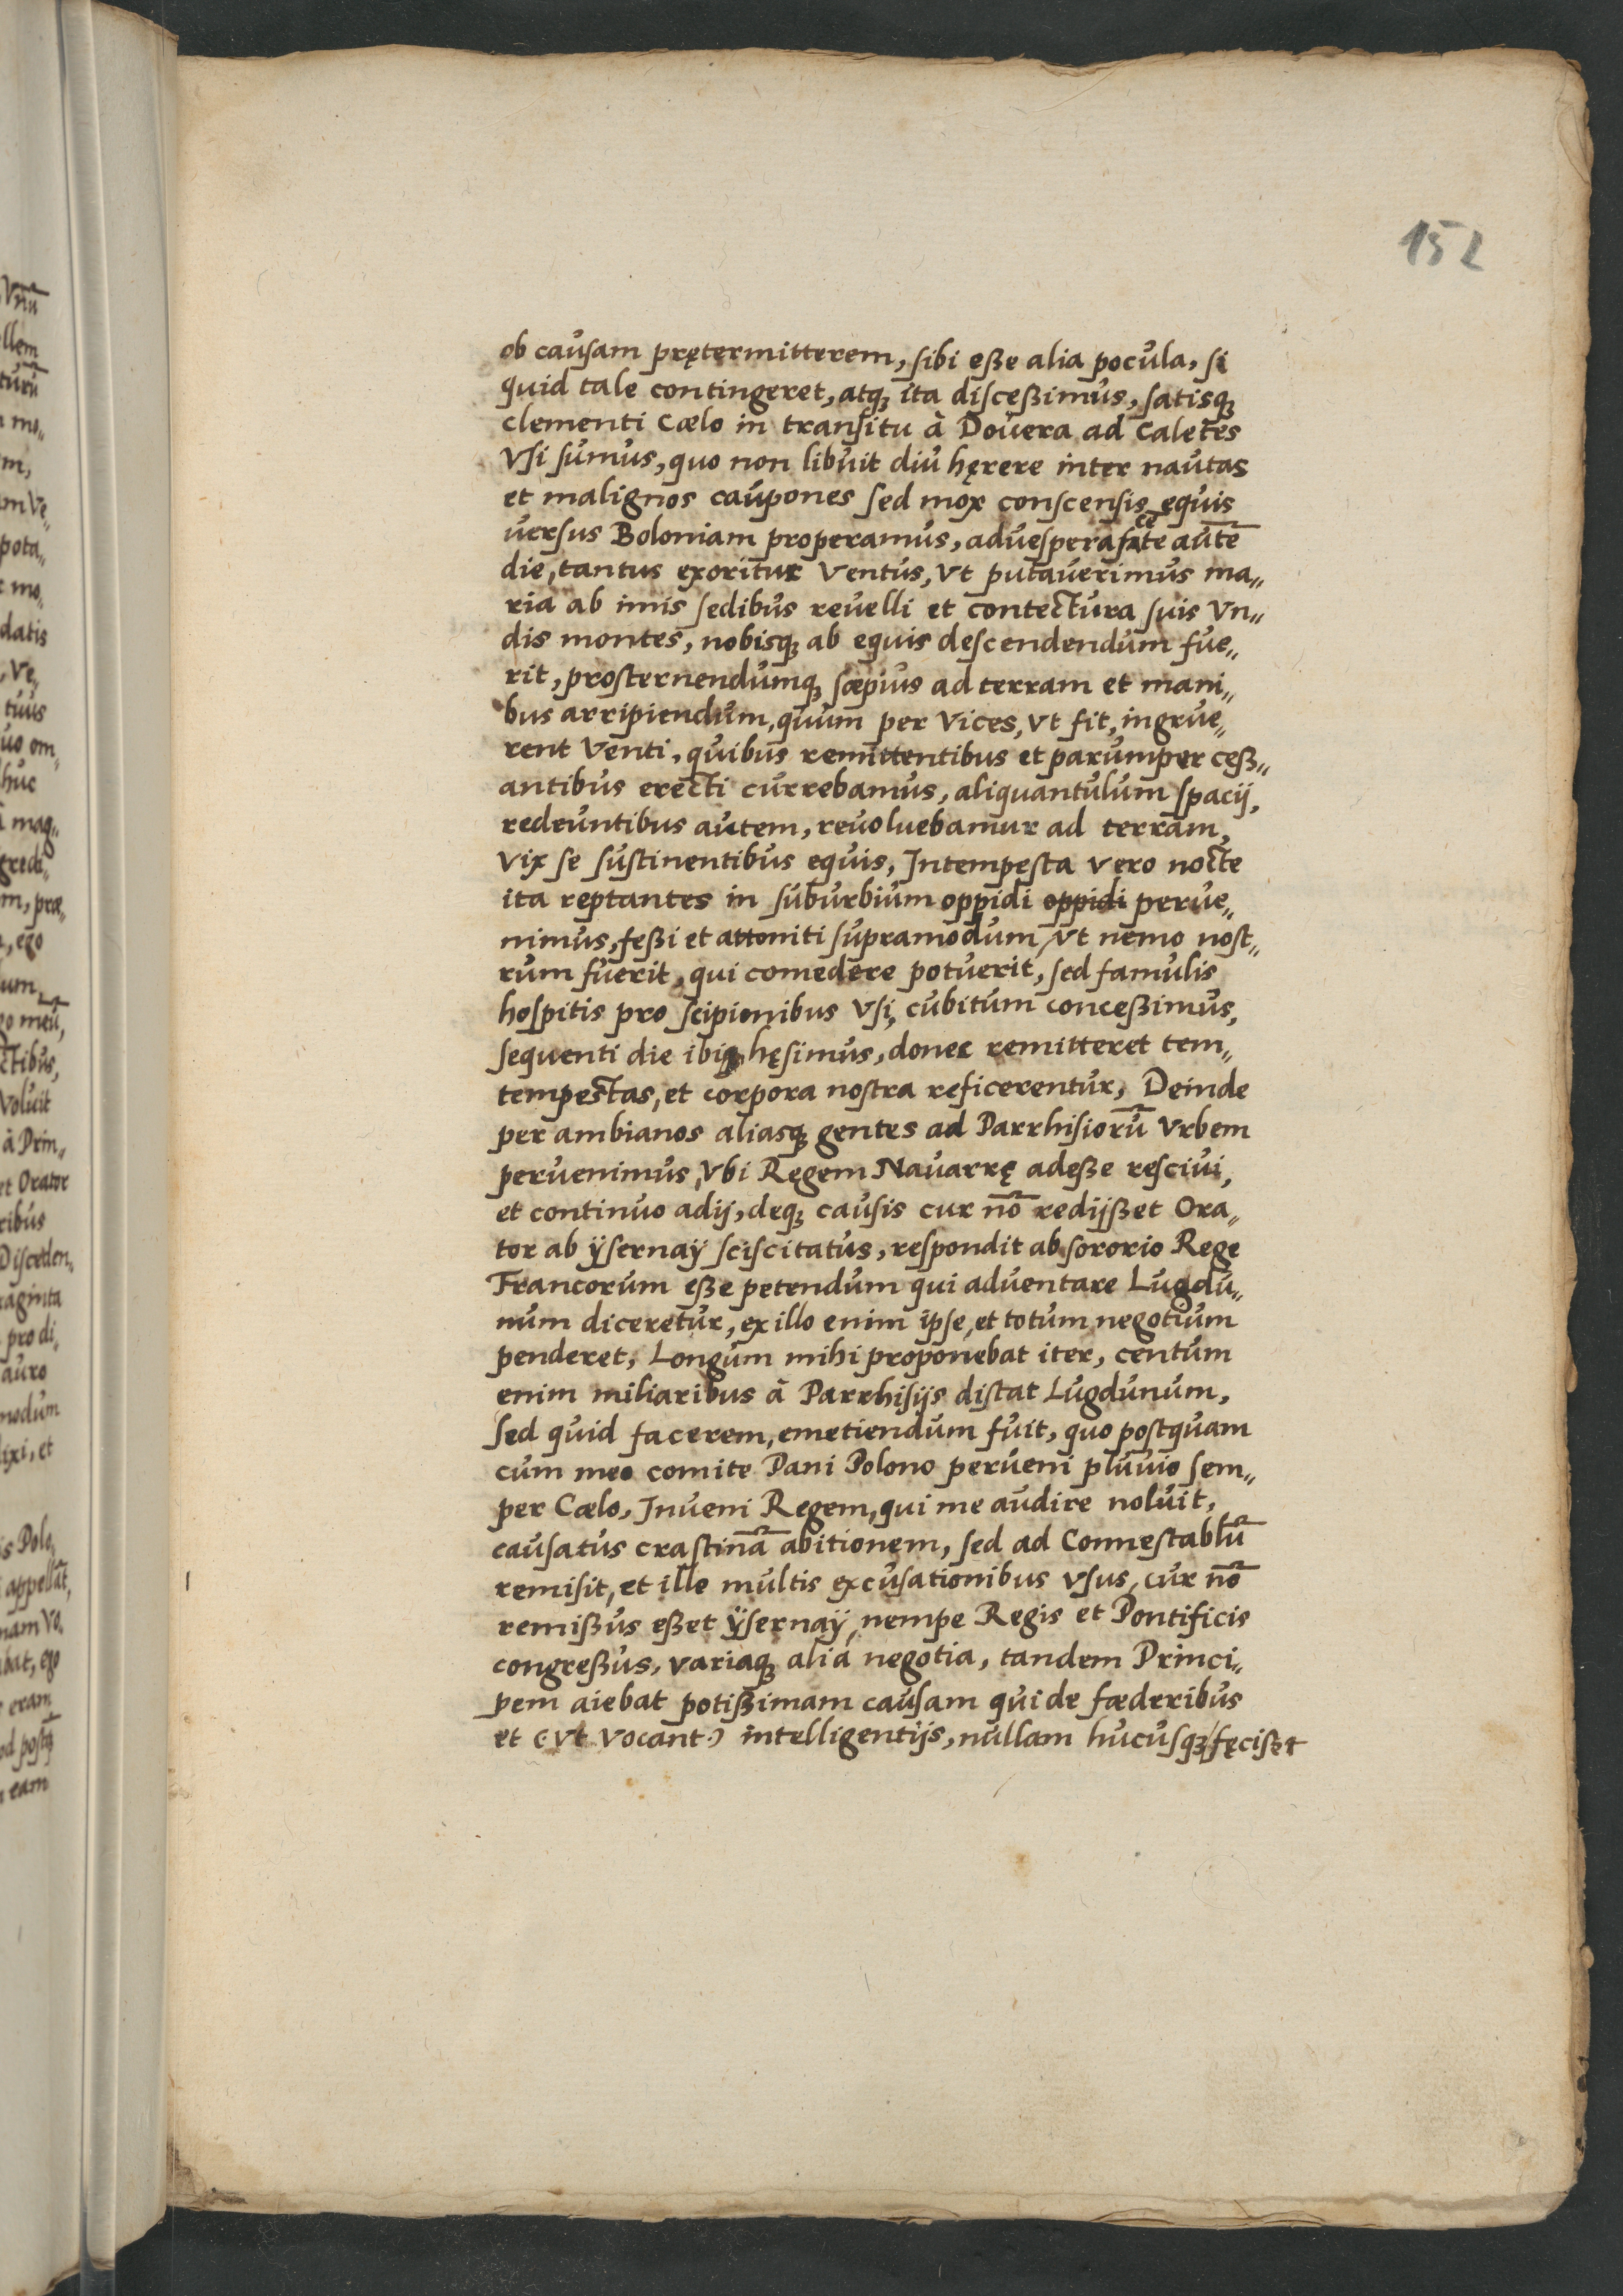 152
ob causam prętermitterem, sibi eße alia pocula, si
quid tale contingeret, atq₃ ita disceßimus, satisq₃
clementi Cœlo in transitu à Dovera ad Caletes
Vsi sumus, quo non libuit diu hęrere inter nautas
et malignos caupones sed mox conscensis equis
versus Boloniam properamus, aduesperascēte autē
die, tantus exoritur Ventus, Vt putaverimus ma„
ria ab imis sedibus revelli et contectura suis Vn„
dis montes, nobisq₃ ab equis descendendum fue„
rit, prosternendumq₃ sæpius ad terram et mani„
bus arripiendum, quum per Vices, Vt fit, ingrue„
rent Venti, quibus remittentibus et parumper ceß„
antibus erecti currebamus, aliquantulum spacij,
redeuntibus autem, revoluebamur ad terram,
Vix se sustinentibus equis, Intempesta vero nocte
ita reptantes in suburbium oppidi oppidi perue„
nimus, feßi et attoniti supramodum, Vt nemo nost„
rum fuerit, qui comedere potuerit, sed famulis
hospitis pro scipionibus Vsi, cubitum conceßimus,
sequenti die ibiq₃ hęsimus, donec remitteret tem„
tempestas, et corpora nostra reficerentur, Deinde
per ambianos aliasq₃ gentes ad Parrhisiorū Vrbem
pervenimus, Vbi Regem Navarrę adeße rescivi,
et continuo adij, deq₃ causis cur nō redijßet Ora„
tor ab ÿsernaÿ sciscitatus, respondit ab sororio Rege
Francorum eße petendum qui adventare Lugdu„
num diceretur, ex illo enim ipse, et totum negotium
penderet, Longum mihi proponebat iter, centum
enim miliaribus à Parrhisijs distat Lugdunum,
sed quid facerem, emetiendum fuit, quo postquam
cum meo comite Pani Polono perveni pluvio sem„
per Cœlo, Inveni Regem, qui me audire noluit,
causatus crastinā abitionem, sed ad Connestablū
remisit, et ille multis excusationibus Vsus, cur nō
remißus eßet ÿsernaÿ, nempe Regis et Pontificis
congreßus, variaq₃ alia negotia, tandem Princi„
pem aiebat potißimam causam qui de fœderibus
et (Vt vocant) intelligentijs, nullam hucusq₃ fęciset